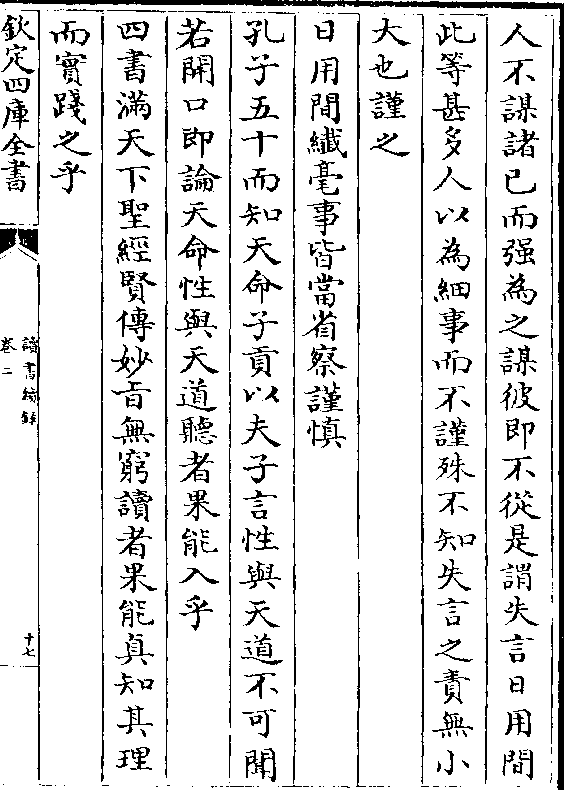 人不謀諸已而强為之謀彼即不從是謂失言日用間
此等甚多人以為細事而不謹殊不知失言之責無小
大也謹之
日用間纖毫事皆當省察謹慎
孔子五十而知天命子貢以夫子言性與天道不可聞
若開口即論天命性與天道聽者果能入乎
四書滿天下聖經賢傳妙㫖無窮讀者果能真知其理
而實踐之乎
欽定四庫全書
讀書續録
卷二
十七